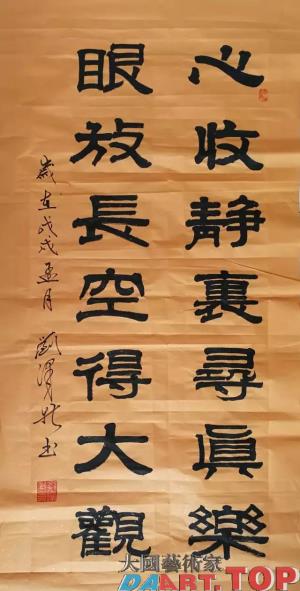 心收静裏尋真樂
眼放長空得大觀
歲在戊戌孟月
書
大國藝術家
DAART.TOP